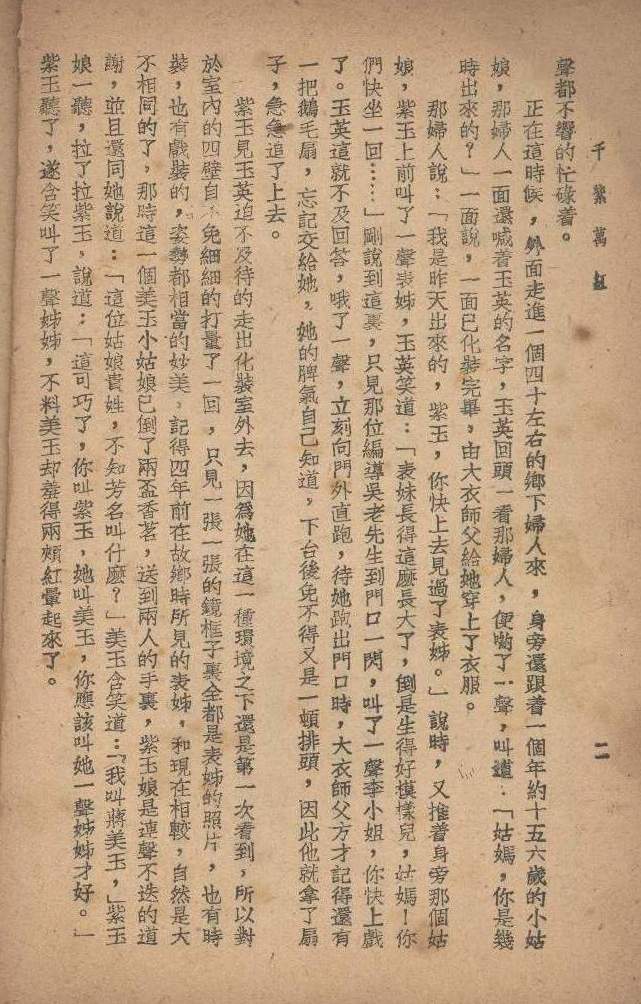 千紫萬紅
二
聲都不響的忙碌着。
正在這時候，外面走進一個四十左右的鄉下婦人來，身旁還跟着一個年約十五六歲的小姑
娘，那婦人一面還喊着玉英的名字，玉英回頭一看那婦人，便喲了一聲，叫道：「姑媽，你是幾
時出來的？」一面說，一面已化裝完畢，由大衣師父給她穿上了衣服。
那婦人說：「我是昨天出來的，紫玉，你快上去見過了表姊。」說時，又推着身旁那個姑
娘，紫玉上前叫了一聲表姊，玉英笑道：「表妹長得這麽長大了，倒是生得好模樣兒，姑媽！你
們快坐一回……」剛說到這裏，只見那位編導吳老先生到門口一閃，叫了一聲李小姐，你快上戲
了。玉英這就不及回答，哦了一聲，立刻向門外直跑，待她跑出門口時，大衣師父方才記得還有
一把鵝毛扇，忘記交給她，她的脾氣自己知道，下台後免不得又是一頓排頭，因此他就拿了扇
子，急急追了上去。
紫玉見玉英迫不及待的走出化裝室外去，因爲她在這一種環境之下還是第一次看到，所以對
於室內的四壁自不免細細的打量了一回，只見一張一張的鏡框子裏全都是表姊的照片，也有時
裝，也有戲裝的，姿勢都相當的妙美，記得四年前在故鄉時所見的表姊，和現在相較，自然是大
不相同的了，那時這一個美玉小姑娘已倒了兩盃香茗，送到兩人的手裏，紫玉娘是連聲不迭的道
謝，並且還同她說道：「這位姑娘貴姓，不知芳名叫什麽？」美玉含笑道：「我叫蔣美玉，」紫玉
娘一聽，拉了拉紫玉，說道：「這可巧了，你叫紫玉，她叫美玉，你應該叫她一聲姊姊才好。」
紫玉聽了，遂含笑叫了一聲姊姊，不料美玉却羞得兩頰紅暈起來了。